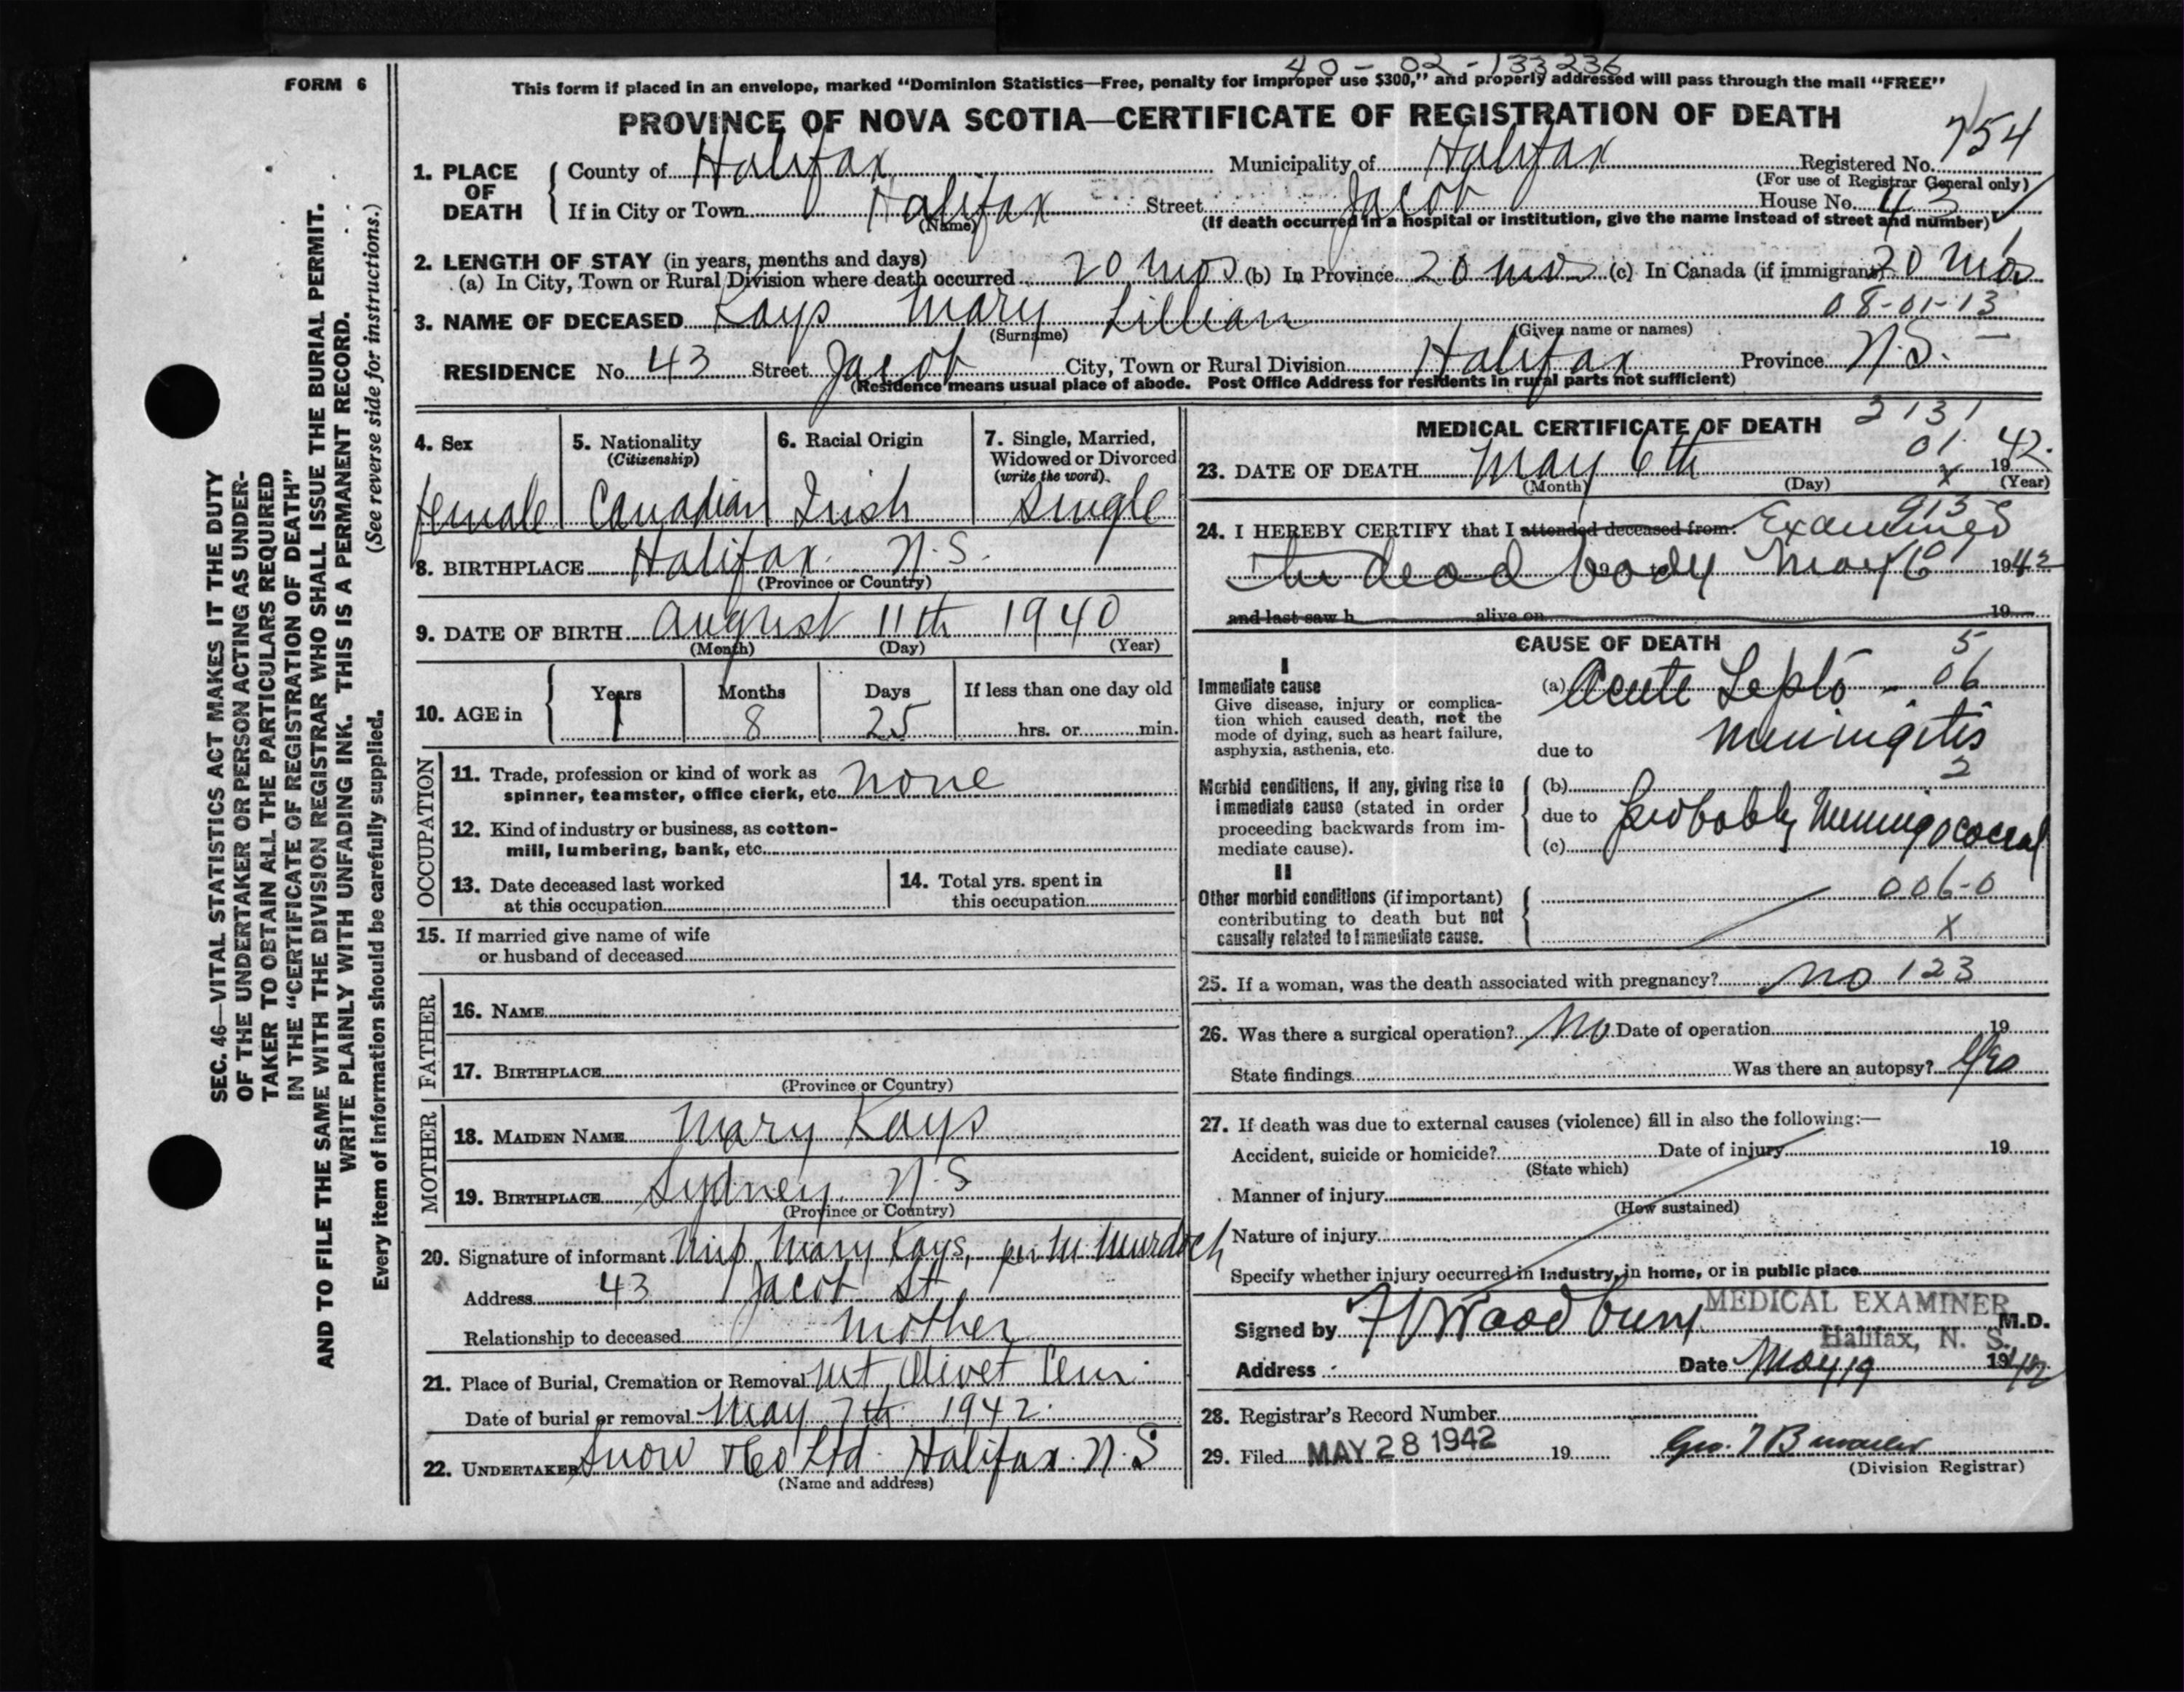 40-02-133236
FORM 6
This form if placed in an envelope, marked “Dominion Statistics—Free, penalty for improper use $300,” and properly addressed will pass through the mail “FREE”
PROVINCE OF NOVA SCOTIA—CERTIFICATE OF REGISTRATION OF DEATH
754
1. PLACE OF DEATH County of Halifax Municipality of Halifax Registered No.
(For use of Registrar General only)
If in City or Town Halifax Street Jacob House No. 43
(Name) (If death occurred in a hospital or institution, give the name instead of street and number)
2. LENGTH OF STAY (in years, months and days)
(a) In City, Town or Rural Division where death occurred 20 mos (b) In Province 20 mos (c) In Canada (if immigrant) 20 mos
08-01-13
3. NAME OF DECEASED Kays Mary Lillian
(Surname) (Given name or names)
RESIDENCE No. 43 Street Jacob City, Town or Rural Division Halifax Province N.S.
(Residence means usual place of abode. Post Office Address for residents in rural parts not sufficient)
4. Sex 5. Nationality 6. Racial Origin 7. Single, Married,
(Citizenship) Widowed or Divorced
(write the word)
female Canadian Irish single
8. BIRTHPLACE Halifax N.S.
(Province or Country)
9. DATE OF BIRTH August 11th 1940
(Month) (Day) (Year)
10. AGE in Years Months Days If less than one day old
1 8 25 hrs. or min.
OCCUPATION
11. Trade, profession or kind of work as
spinner, teamster, office clerk, etc. none
12. Kind of industry or business, as cotton-
mill, lumbering, bank, etc.
13. Date deceased last worked
at this occupation
14. Total yrs. spent in
this occupation
15. If married give name of wife
or husband of deceased
FATHER
16. NAME
17. BIRTHPLACE
(Province or Country)
MOTHER
18. MAIDEN NAME Mary Kays
19. BIRTHPLACE Sydney. N.S
(Province or Country)
20. Signature of informant Miss Mary Kays, per M Murdoch
Address 43 Jacob St.
Relationship to deceased Mother
21. Place of Burial, Cremation or Removal Mt Olivet Cem
Date of burial or removal May 7th 1942.
22. UNDERTAKER Snow & Co Ltd. Halifax. N.S
(Name and address)
MEDICAL CERTIFICATE OF DEATH 2131
01
23. DATE OF DEATH May 6th x 1942.
(Month) (Day) (Year)
913
24. I HEREBY CERTIFY that I attended deceased from: Examined
the dead body May 6 1942
and last saw h alive on 19
CAUSE OF DEATH
5
I
Immediate cause
Give disease, injury or complica-
tion which caused death, not the
mode of dying, such as heart failure,
asphyxia, asthenia, etc.
(a) Acute Lepto - 06
Meningitis
due to
2
Morbid conditions, if any, giving rise to
immediate cause (stated in order
proceeding backwards from im-
mediate cause).
(b)
due to Probably Meningococcal
(c)
II
Other morbid conditions (if important)
contributing to death but not
causally related to immediate cause.
006-0
x
25. If a woman, was the death associated with pregnancy? no 123
26. Was there a surgical operation? No Date of operation 19
State findings Was there an autopsy? Yes
27. If death was due to external causes (violence) fill in also the following:—
Accident, suicide or homicide? Date of injury 19
(State which)
Manner of injury
(How sustained)
Nature of injury
Specify whether injury occurred in industry, in home, or in public place
MEDICAL EXAMINER
Signed by Woodbury M.D.
Halifax, N. S.
Address Date May 19 1942
28. Registrar's Record Number
29. Filed MAY 28 1942 19
(Division Registrar)
SEC. 46—VITAL STATISTICS ACT MAKES IT THE DUTY
OF THE UNDERTAKER OR PERSON ACTING AS UNDER-
TAKER TO OBTAIN ALL THE PARTICULARS REQUIRED
IN THE “CERTIFICATE OF REGISTRATION OF DEATH”
AND TO FILE THE SAME WITH THE DIVISION REGISTRAR WHO SHALL ISSUE THE BURIAL PERMIT.
WRITE PLAINLY WITH UNFADING INK. THIS IS A PERMANENT RECORD.
Every item of information should be carefully supplied. (See reverse side for instructions.)